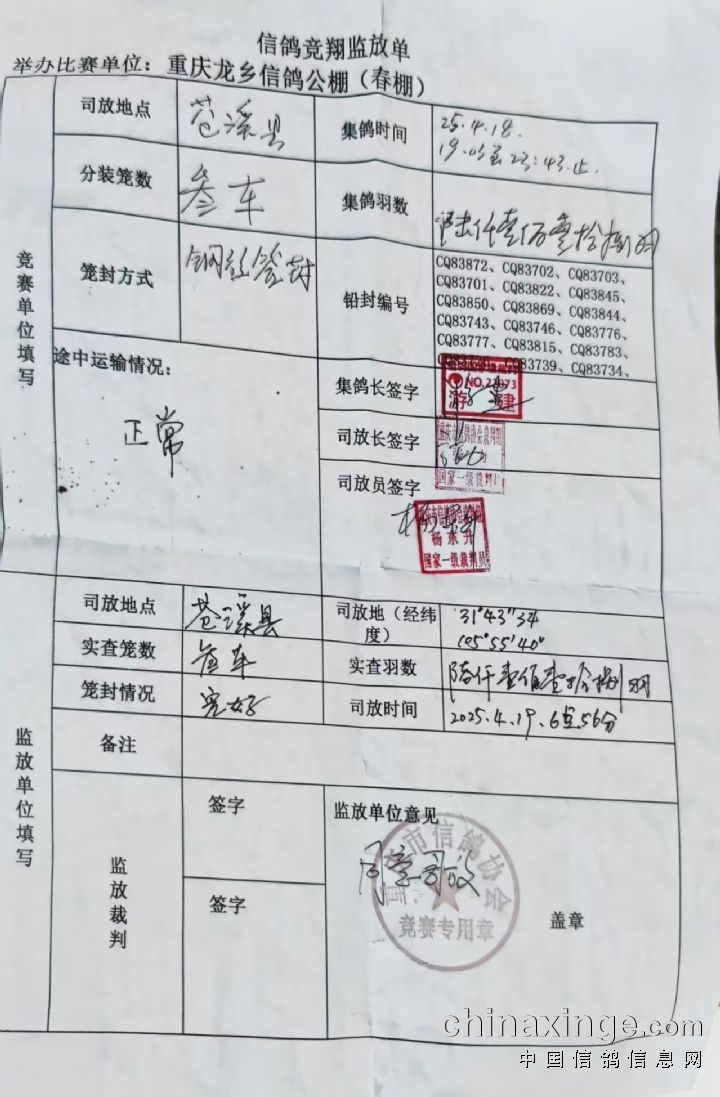 信鸽竞翔监放单
举办比赛单位：重庆龙乡信鸽公棚（春棚）
竞赛单位填写
司放地点
苍溪县
集鸽时间
25.4.18.
分装笼数
叁车
集鸽羽数
陆仟壹佰壹拾捌羽
笼封方式
铅封编号
CQ83872、CQ83702、CQ83703、
CQ83701、CQ83822、CQ83845、
CQ83850、CQ83869、CQ83844、
CQ83743、CQ83746、CQ83776、
CQ83777、CQ83815、CQ83783、
CQ83739、CQ83734、
途中运输情况：
正常
集鸽长签字
游 建
司放长签字
国家一级裁判
司放员签字
杨东升
国家一级裁判员
监放单位填写
司放地点
苍溪县
司放地（经纬度）
31°43″34
105°55′40″
实查笼数
叁车
实查羽数
陆仟壹佰壹拾捌羽
笼封情况
完好
司放时间
2025.4.19.6点56分
备注
监放裁判
签字
签字
监放单位意见
同意司放
市信鸽协会
竞赛专用章
盖章
chinaxinge.com
中国信鸽信息网